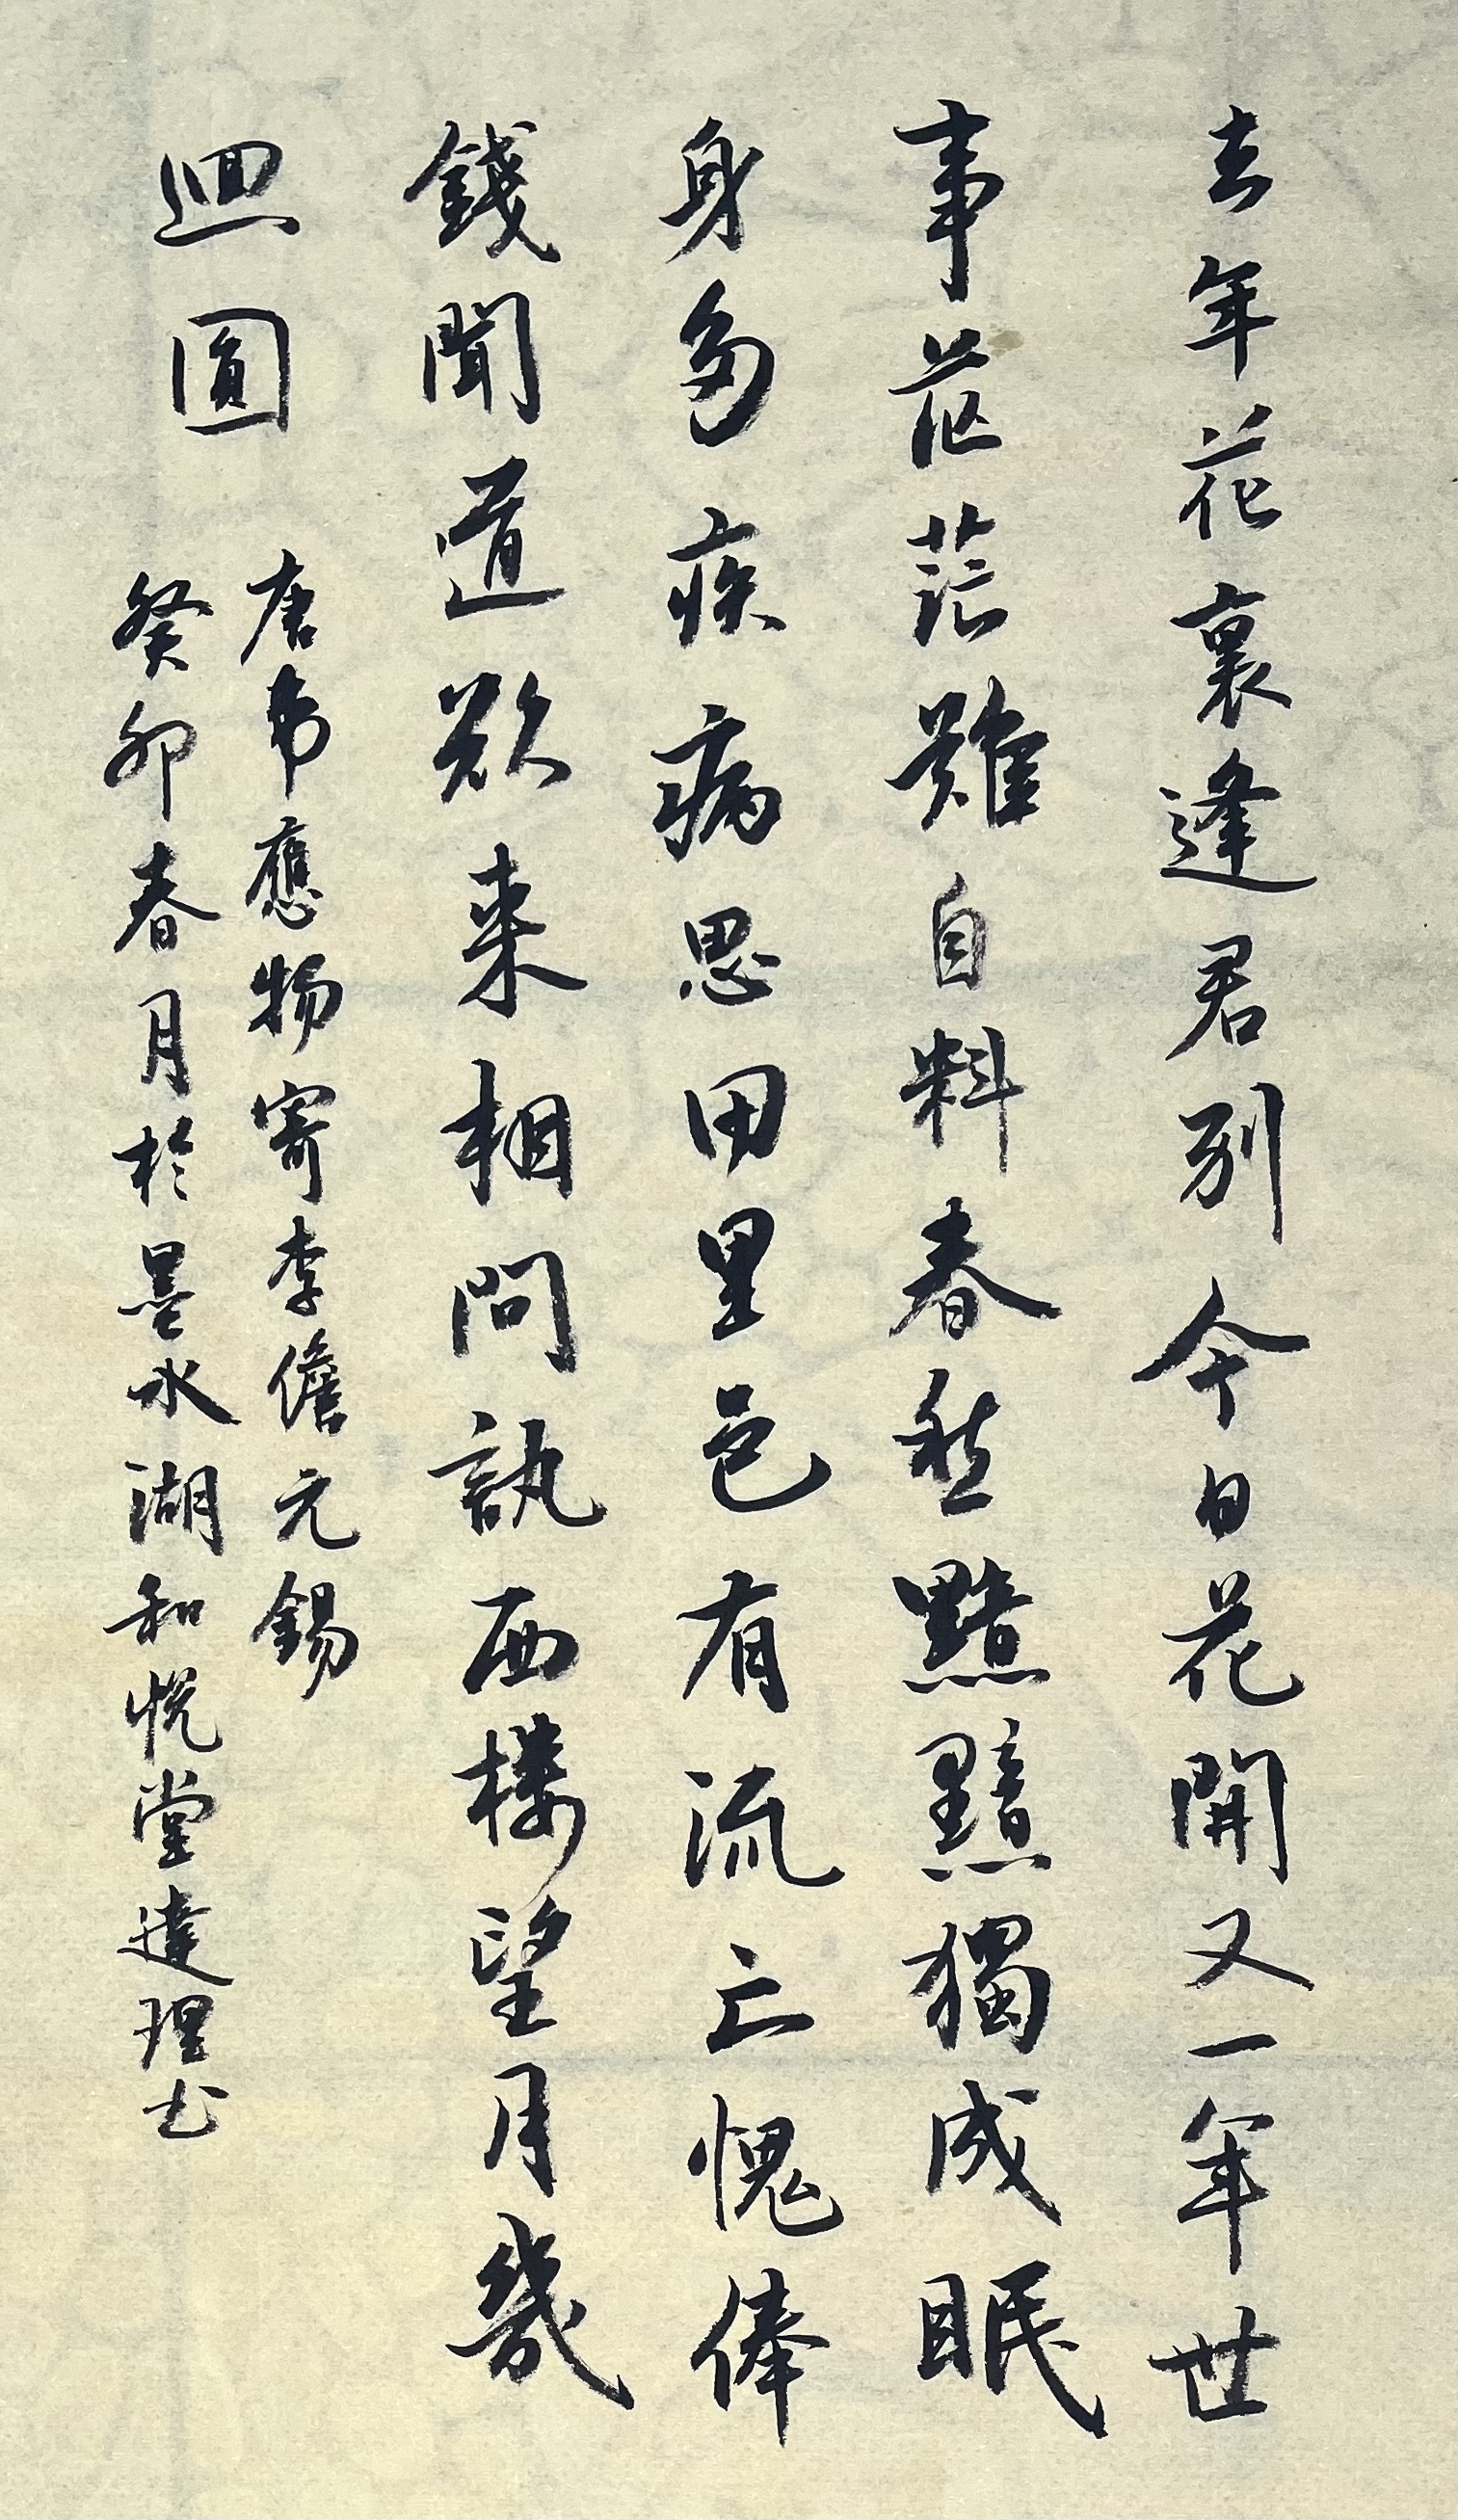 去年花裏逢君別今日花開又一年世
事茫茫難自料春愁黯黯獨成眠
身多疾病思田里邑有流亡愧俸
錢聞道欲来相問訊西樓望月幾
迴圓
唐韦應物寄李儋元錫
癸卯春月於墨水湖和悦堂達理书